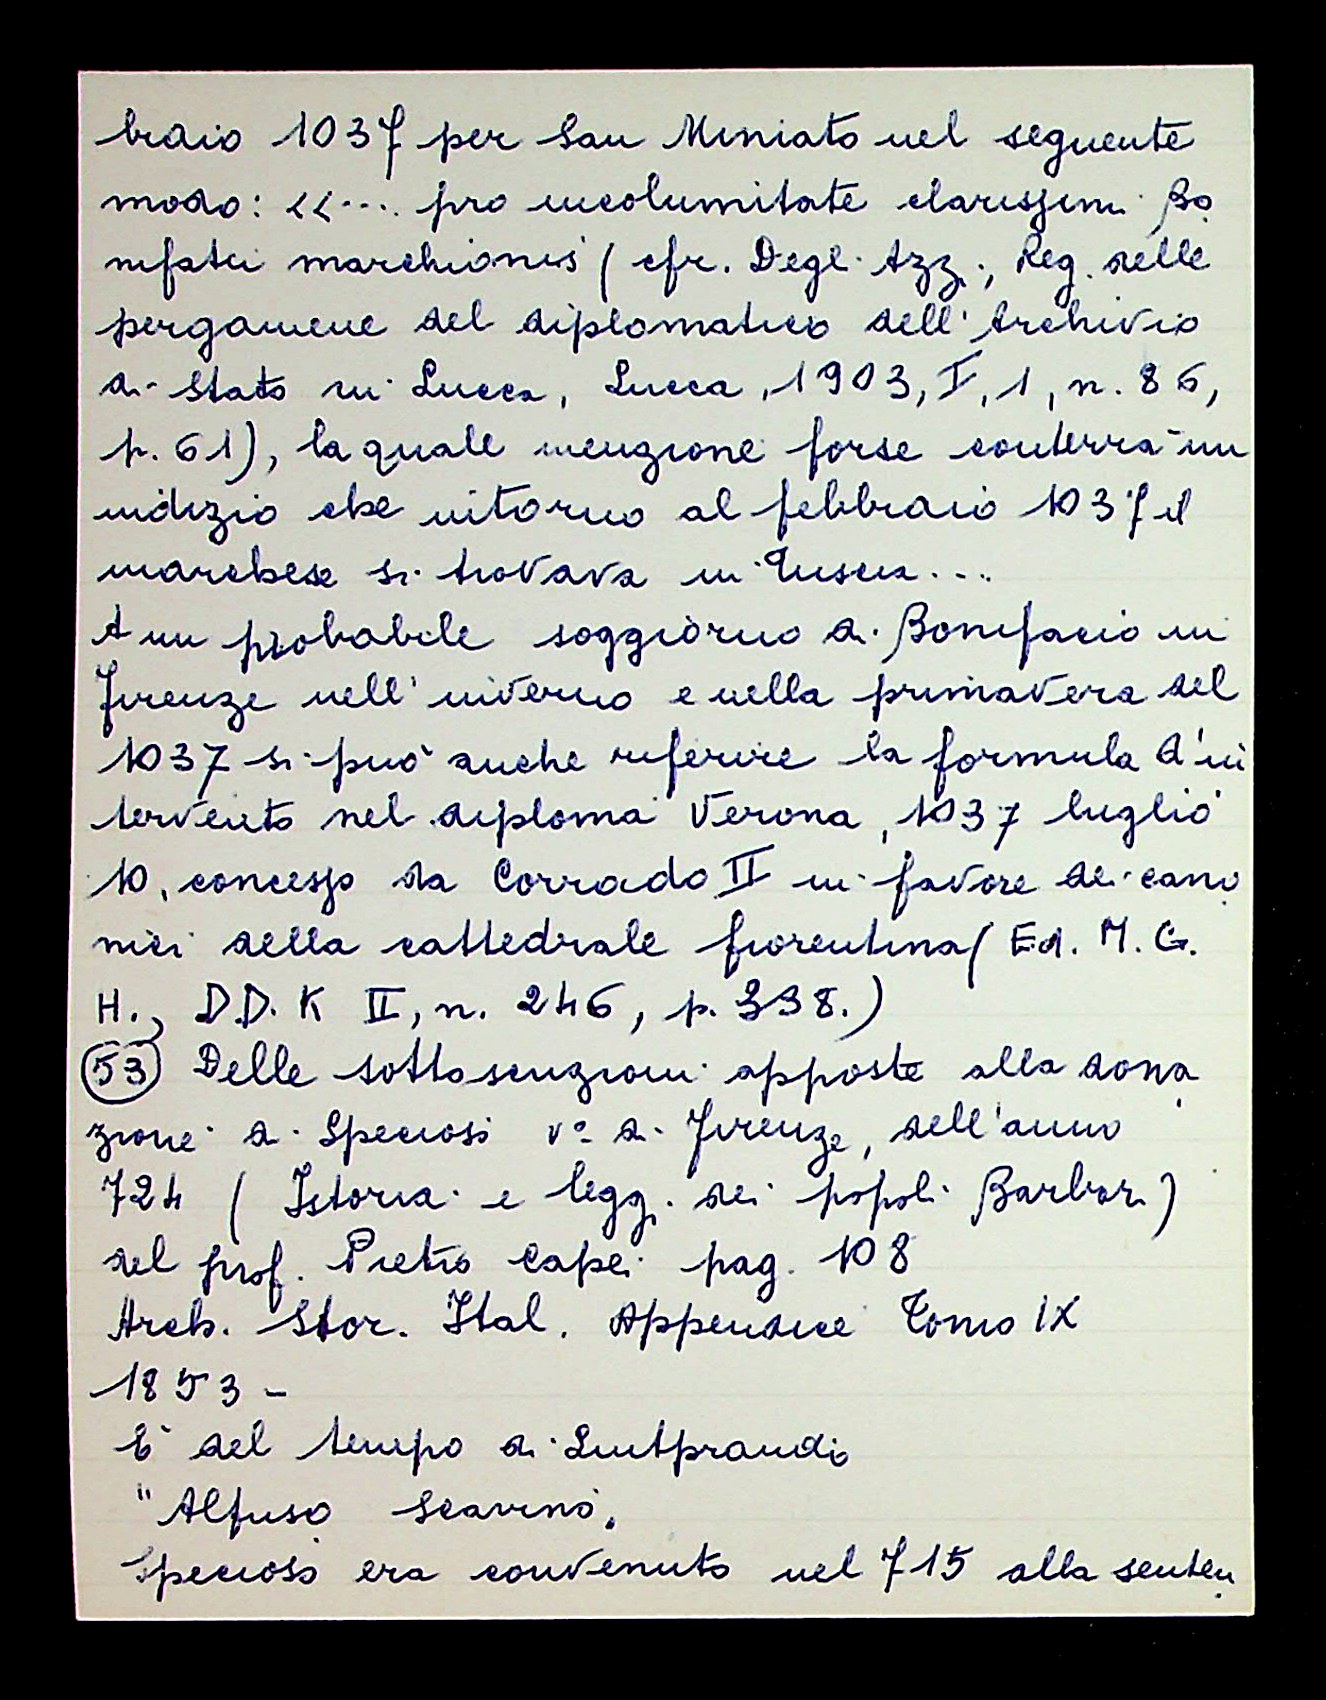 braio 1037 per San Miniato nel seguente
modo: <<... pro incolumitate clarissimi Bo
nifatii marchionis (cfr. Degl. Azz., Reg. delle
pergamene del diplomatico dell'Archivio
di Stato in Lucca, Lucca, 1903, I, 1, n. 86,
p. 61), la quale menzione forse conterrà un
indizio che intorno al febbraio 1037 il
marchese si trovava in Tuscia...
A un probabile soggiorno di Bonifacio in
Firenze nell'inverno e nella primavera del
1037 si può anche riferire la formula d'in
tervento nel diploma Verona, 1037 luglio
10, concesso da Corrado II in favore dei cano
nici della cattedrale fiorentina (Ed. M. G.
H., D.D. K II, n. 246, p. 338.)
53 Delle sottoscrizioni apposte alla dona
zione di Speciosi vº di Firenze, dell'anno
724 (Istoria e legg. dei popoli Barbari)
del prof. Pietro Capei pag. 108
Arch. Stor. Ital. Appendice Tomo IX
1853 -
E' del tempo di Liutprando
"Alfuso Scavino.
Specioso era convenuto nel 715 alla senten